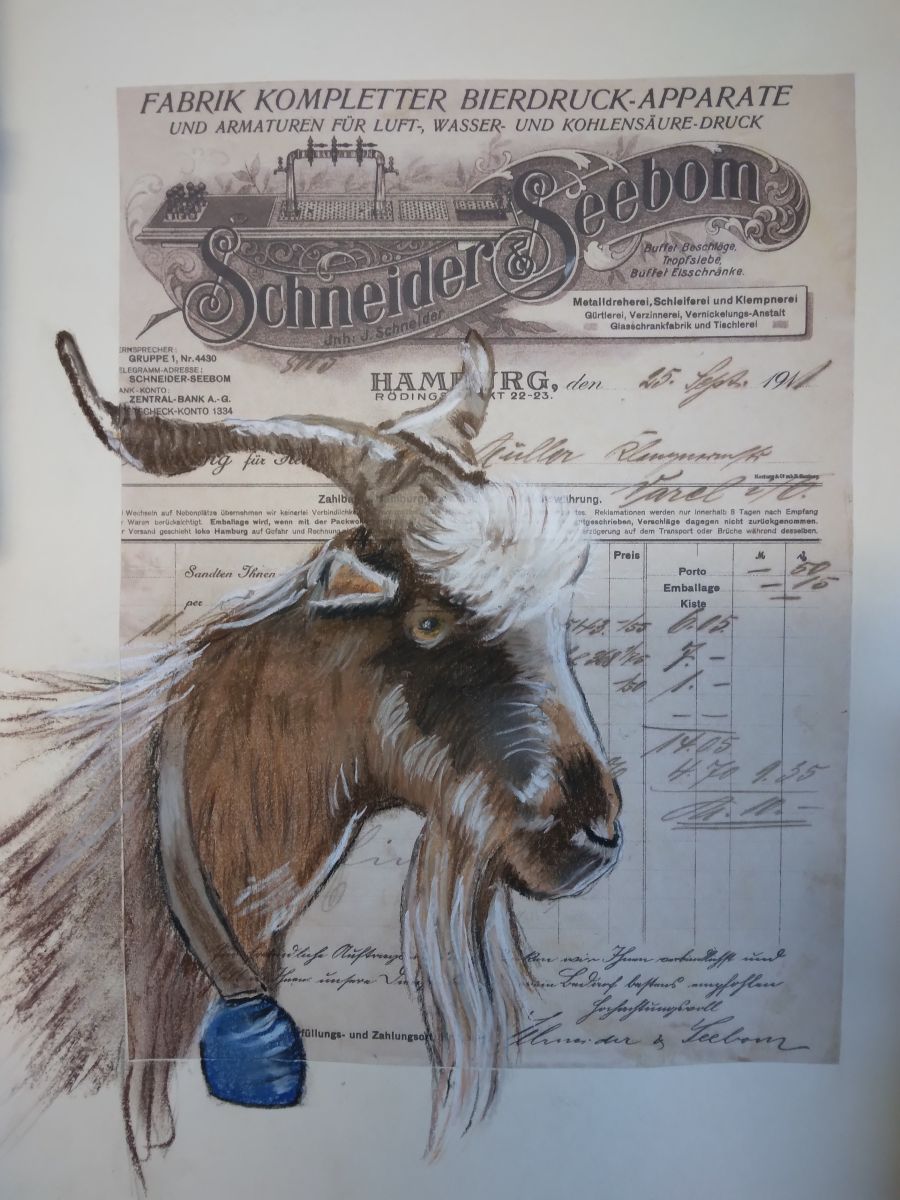 FABRIK KOMPLETTER BIERDRUCK-APPARATE
UND ARMATUREN FÜR LUFT-, WASSER- UND KOHLENSÄURE-DRUCK
Schneider & Seebom
Jnh: J. Schneider
Buffet Beschläge,
Tropfsiebe,
Buffet Eisschränke.
Metalldreherei, Schleiferei und Klempnerei
Gürtlerei, Verzinnerei, Vernickelungs-Anstalt
Glasschrankfabrik und Tischlerei
ERNSPRECHER:
GRUPPE 1, Nr. 4430
ELEGRAMM-ADRESSE:
SCHNEIDER-SEEBOM
ANK-KONTO:
ZENTRAL-BANK A.-G.
SCHECK-KONTO 1334
HAMBURG, den 25. Sept. 1911
RÖDINGSMARKT 22-23.
für
Müller
Varel i/O.
Zahlbar Hamburg währung.
Wechseln auf Nebenplätze übernehmen wir keinerlei Verbindlich es. Reklamationen werden nur innerhalb 8 Tagen nach Empfang
r Waren berücksichtigt. Emballage wird, wenn mit der Packwo tgeschrieben, Verschläge dagegen nicht zurückgenommen.
r Versand geschieht loko Hamburg auf Gefahr und Rechnun erzögerung auf dem Transport oder Brüche während desselben.
Preis
Sandten Ihnen
per
Porto — 50
Emballage — 15
Kiste — —
6.05
7. —
1. —
— —
14.05
4.70 9.35
M. 10. —
ndliche Auftrag wir Ihnen verbindlichst und
Ihnen unsere Bedarf bestens empfohlen
Hochachtungsvoll
füllungs- und Zahlungsort
Schneider & Seebom